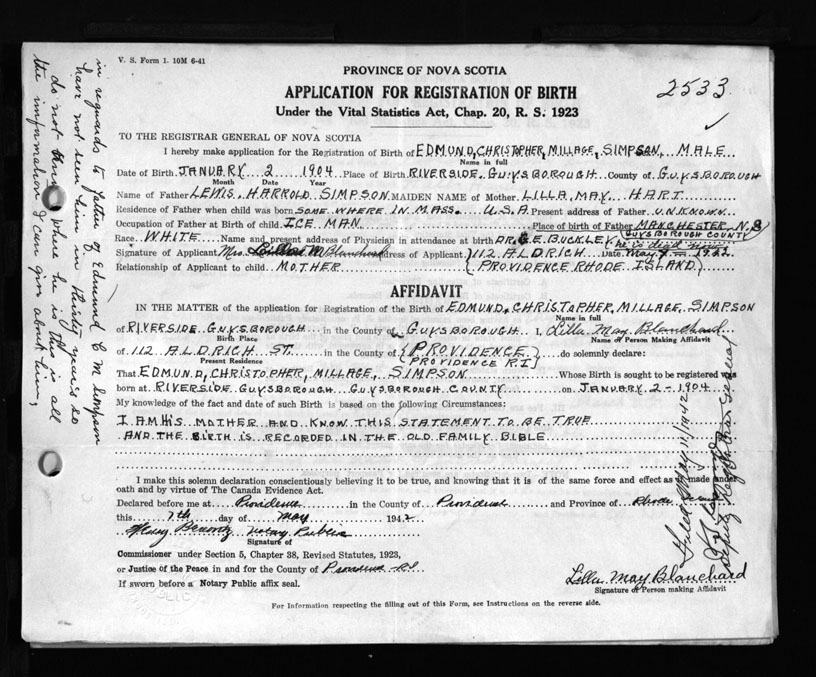 V. S. Form 1. 10M 6-41
2533
PROVINCE OF NOVA SCOTIA
APPLICATION FOR REGISTRATION OF BIRTH
Under the Vital Statistics Act, Chap. 20, R. S. 1923
TO THE REGISTRAR GENERAL OF NOVA SCOTIA
I hereby make application for the Registration of Birth of EDMUND, CHRISTOPHER, MILLAGE, SIMPSON, MALE
Name in full
Date of Birth JANUARY 2 1904 Place of Birth RIVERSIDE. GUYSBOROUGH County of GUYSBOROUGH
Month Date Year
Name of Father LEWIS HARROLD SIMPSON MAIDEN NAME of Mother LILLA, MAY, HART
Residence of Father when child was born SOME WHERE IN MASS. U.S.A Present address of Father UNKNOWN.
Occupation of Father at Birth of child ICE MAN. Place of birth of Father MANCHESTER, N.S
GUYSBOROUGH COUNTY
Race WHITE Name and present address of Physician in attendance at birth DR. G.E. BUCKLEY he is dead now
Signature of Applicant Mrs M Blanchard Address of Applicant 112 ALDRICH Date May
Relationship of Applicant to child MOTHER PROVIDENCE RHODE ISLAND
AFFIDAVIT
IN THE MATTER of the application for Registration of Birth of EDMUND, CHRISTOPHER, MILLAGE, SIMPSON
Name in full
of RIVERSIDE GUYSBOROUGH in the County of GUYSBOROUGH I, Lilla May Blanchard
Birth Place Name of Person Making Affidavit
of 112 ALDRICH ST. in the County of PROVIDENCE do solemnly declare:
Present Residence PROVIDENCE R.I
That EDMUND, CHRISTOPHER, MILLAGE, SIMPSON Whose Birth is sought to be registered was
born at RIVERSIDE. GUYSBOROUGH GUYSBOROUGH COUNTY on JANUARY 2 - 1904
My knowledge of the fact and date of such Birth is based on the following Circumstances:
I AM HIS MOTHER AND KNOW THIS STATEMENT TO BE TRUE
AND THE BIRTH IS RECORDED IN THE OLD FAMILY BIBLE
I make this solemn declaration conscientiously believing it to be true, and knowing that it is of the same force and effect as if made under
oath and by virtue of The Canada Evidence Act.
Declared before me at Providence in the County of Providence and Province of Rhode Island
this 7th day of May 1942
Notary Public
Signature of
Commissioner under Section 5, Chapter 38, Revised Statutes, 1923,
or Justice of the Peace in and for the County of Providence RI
If sworn before a Notary Public affix seal.
Lilla May Blanchard
Signature of Person making Affidavit
For Information respecting the filling out of this Form, see Instructions on the reverse side.
in reguards to father of Edmund C M Simpson
have not seen him in thirty years so
do not know place he is this is all
the information I can give about him,
Filed May 11/1942
Deputy Registrar General